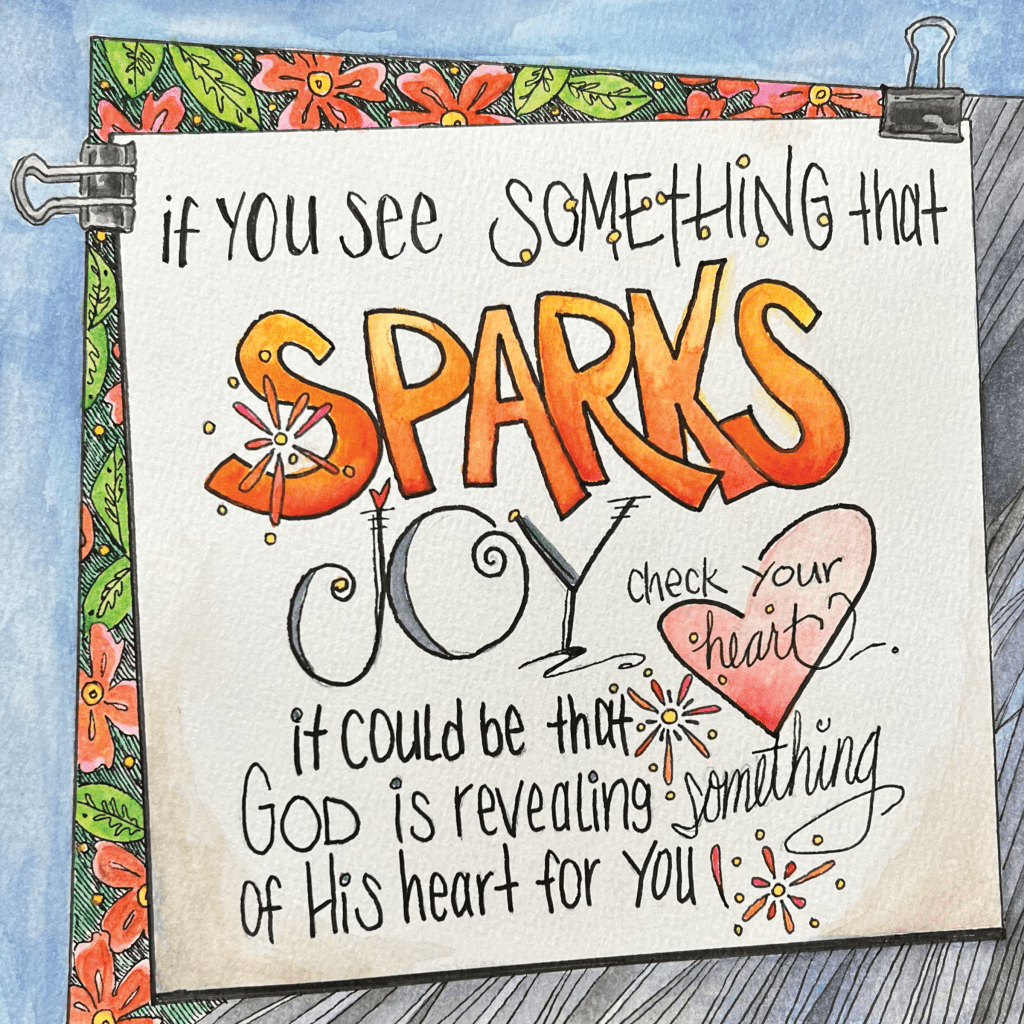 if YOU see SOMEtHiNG that
SPARKS
JOY
check your
heart
it COULd be that
GOD is revealing something
of His heart for YOU!